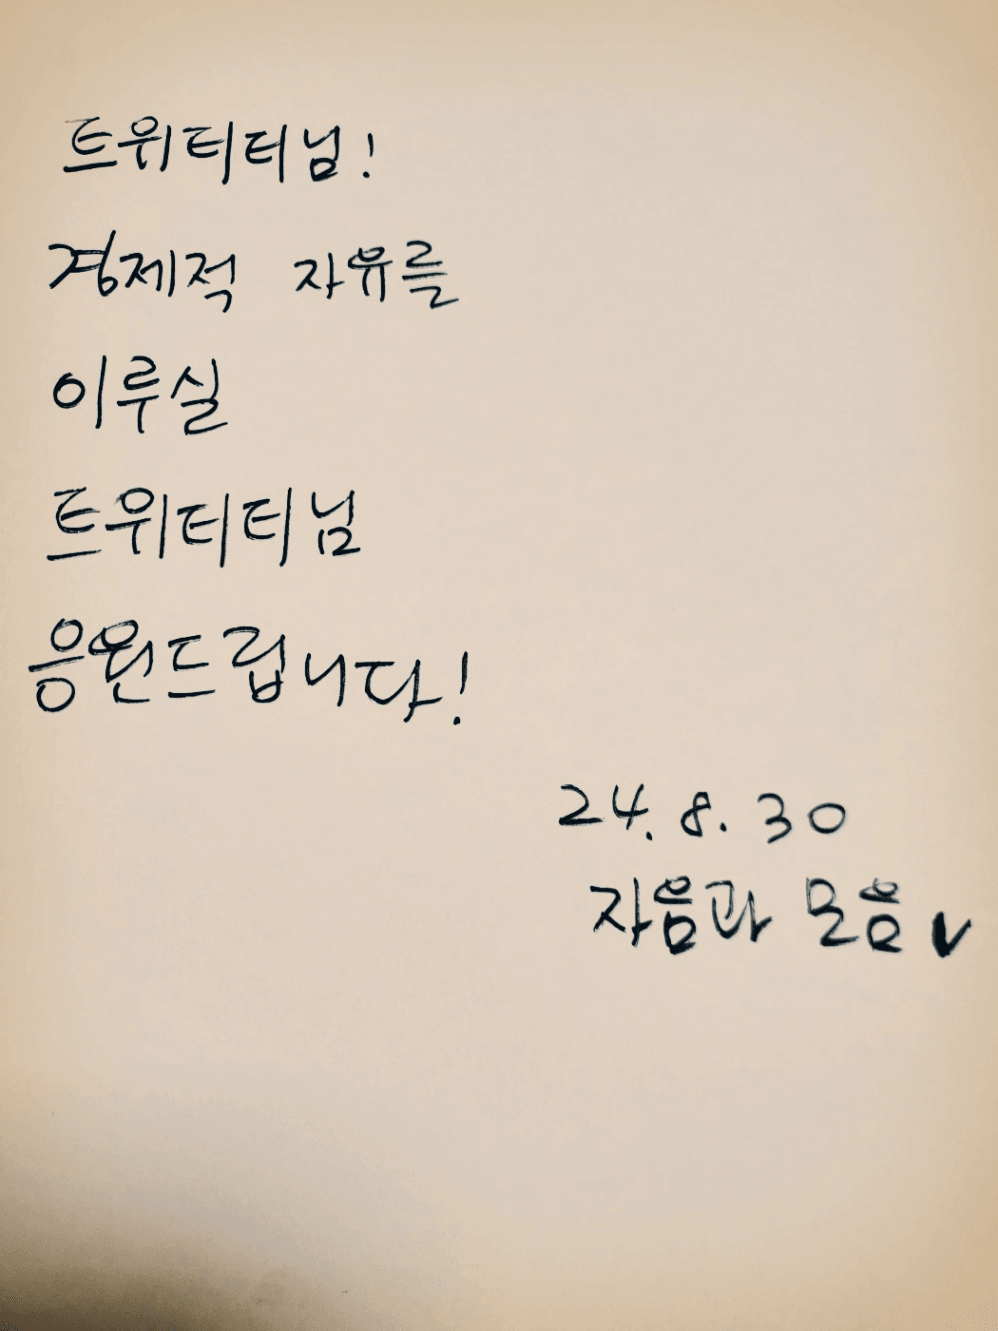 트위티티님!
경제적 자유를
이루실
트위티티님
응원드립니다!
24. 8. 30
자음과 모음